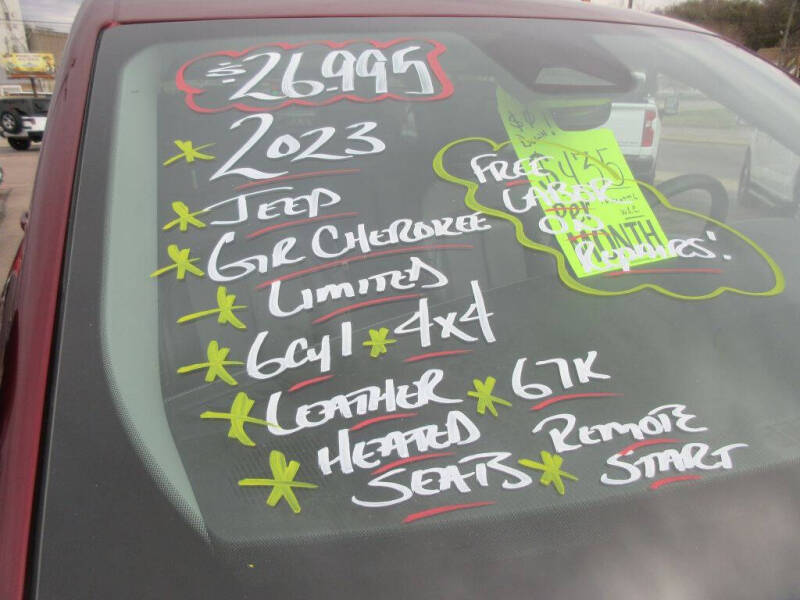 $26.995
2023
JEEP
GR CHEROKEE
LIMITED
6Cyl 4x4
LEATHER 67K
HEATED SEATS
REMOTE START
FREE
LABOR
ON
REPAIRS!
$435
MONTH